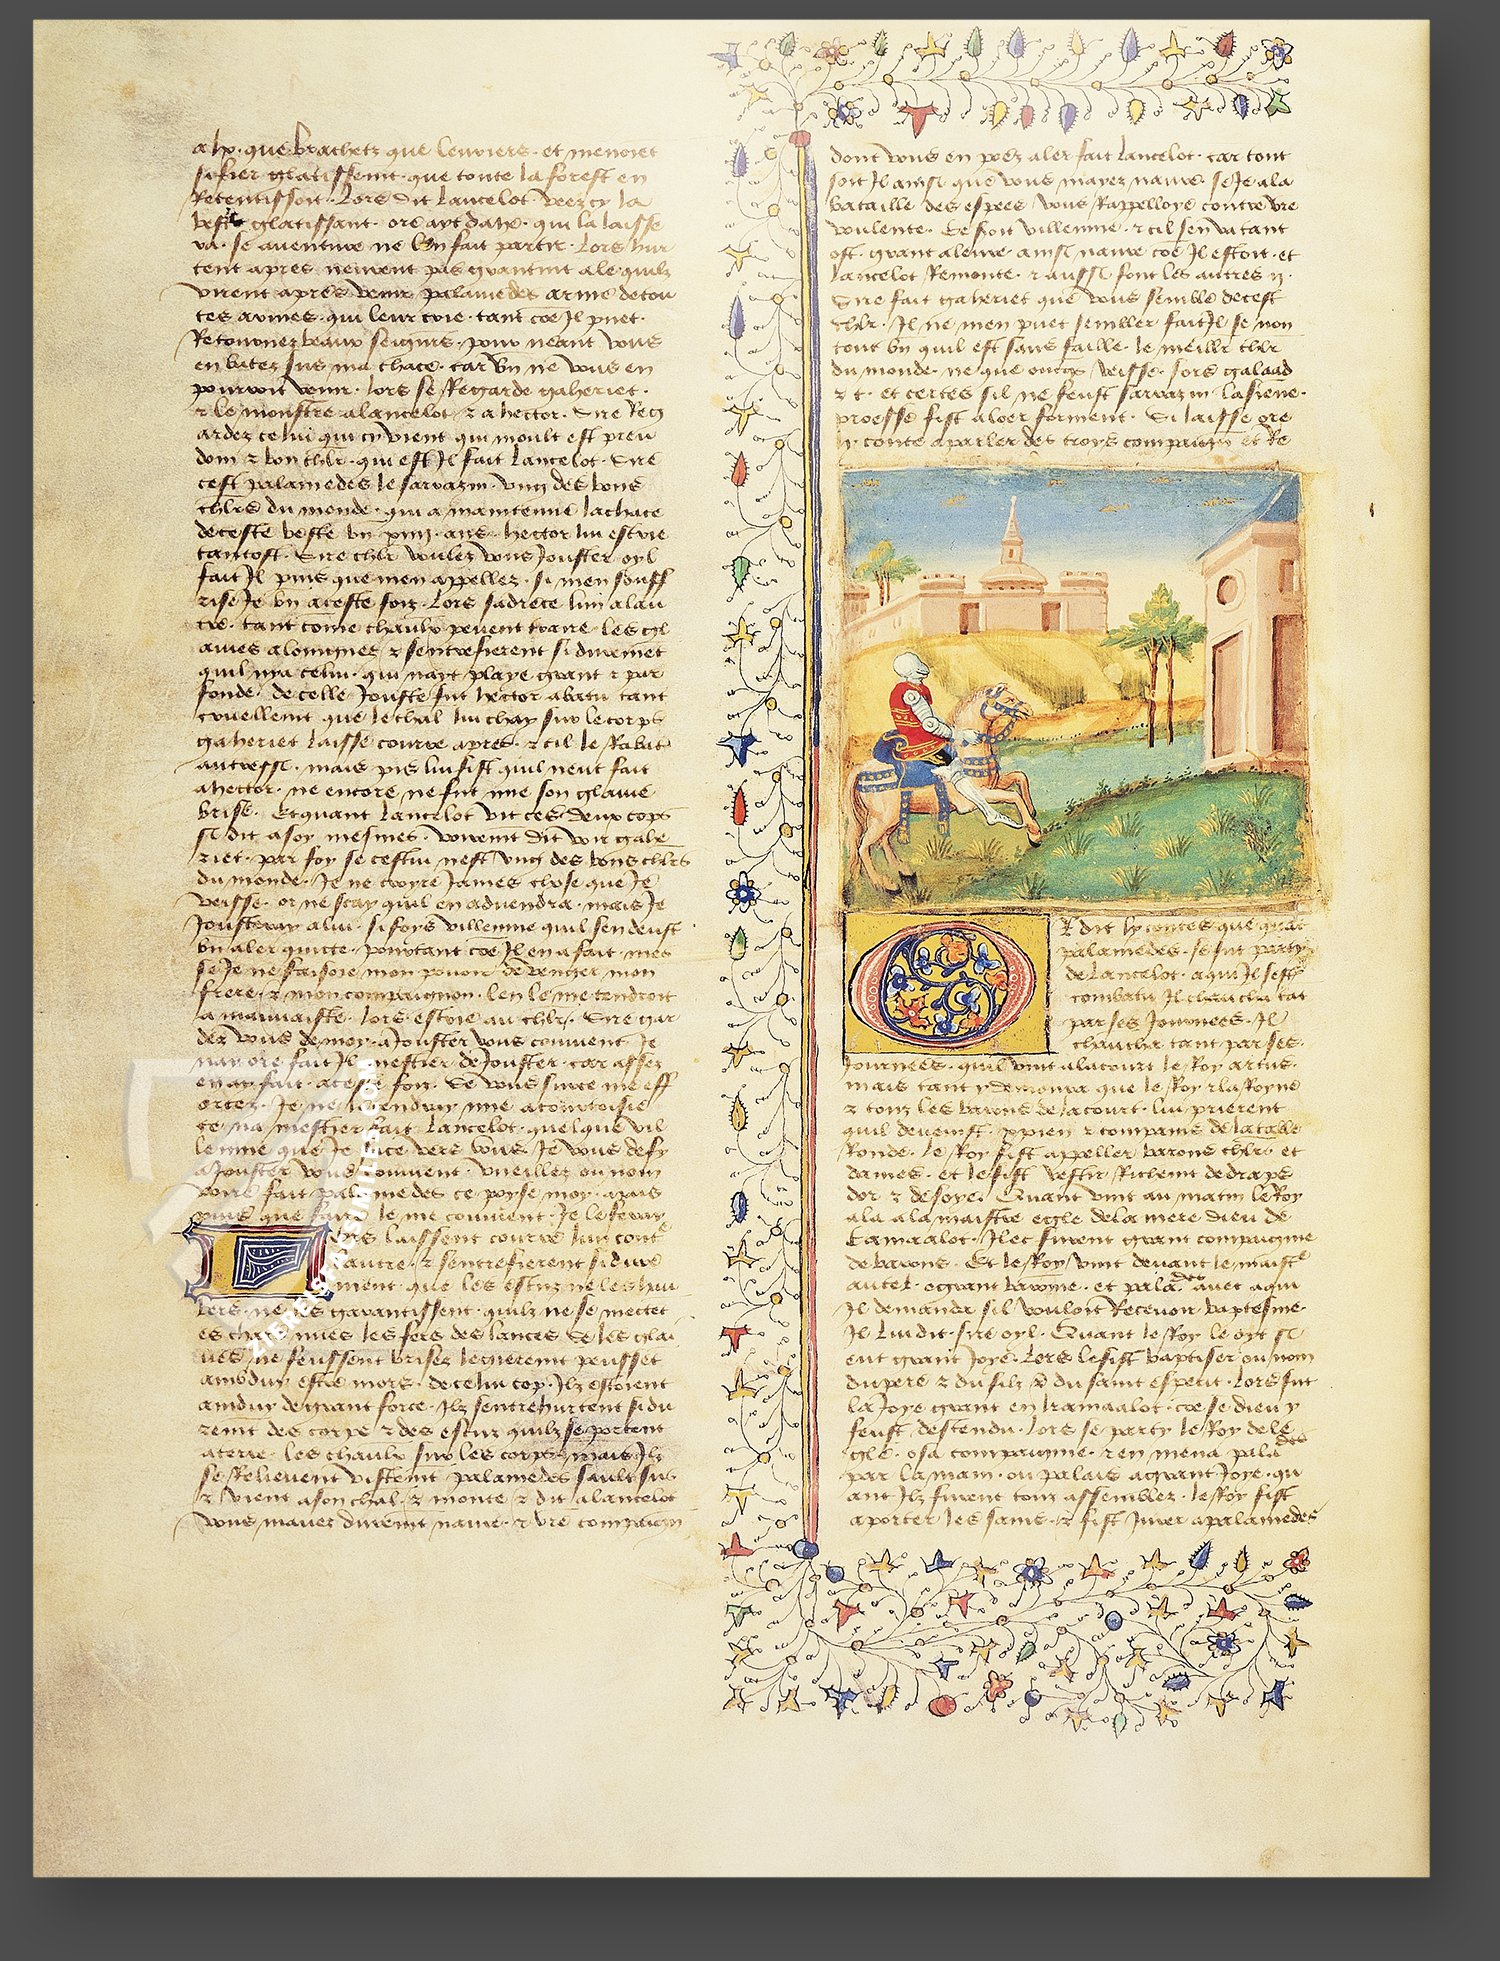 que brachetz que levriers. et menoiet
si fier glatissemt. que toute la forest en
Retentissoit. Lors dit Lancelot. veez cy la
beste glatissant. ore ayt dahe. qui la laisse
va. se aventure ne len fait partir. Lors hur
tent apres neurent pas grantmt ale quilz
virent apres venir palamedes arme de tou
tes armes. qui leur crie. tant coe Il puet.
Retournez beaux seigneurs. pour neant vous
en batez sus ma chace. car bn ne vous en
pourroit venir. lors se Regarde gaheriet.
z le monstre a lancelot z a hector. Sire Reg
ardez celui qui cy vient qui moult est preu
dom z bon chlr. qui est Il fait Lancelot. Sire
cest palamedes le sarrazin. ung des bons
chlrs du monde. qui a maintenue la chace
de ceste beste bn ans. hector lui escrie
tantost. Sire chlr voulez vous Jouster oyl
fait Il puis que men appellez. si men souff
rise Je bn a ceste foiz. Lors sadrece lun a lau
tre. tant come chaulx pevent traire. les gl
aives alongniez z sentrefierent si duremet
quil nya celui. qui nayt playe grant z par
fonde. de celle Jouste fut hector abatu tant
cruellemt que le chal lui chay sur le corps
gaheriet laisse courre apres. z cil le Rabat
autressi. mais pis lui fist quil neut fait
a hector. ne encore ne fut mie son glaive
brise. Et quant Lancelot vit ces deux cops
si dit a soy mesmes. voirmt dit voir gahe
riet. par foy se cestui nest ung des bons chlrs
du monde. Je ne croyre James chose que Je
veisse. or ne scay quil en advendra. mais Je
Jousteray a lui. si foys villennie quil sen deust
bn aler quicte. pourtant coe Il en a fait. mes
se Je ne faisoie mon pouoir de vencher mon
frere. z mon compaignon. len le me tendroit
a mauvaistie. lors escrie au chlr. Sire gar
dez vous de moy. a Jouster vous convient Je
nay ore fait Il mestier de Jouster. car assez
en ay fait. a ceste foiz. Se vous sur ce me eff
orcez. Je ne mie a courtoisie
ce na mestier fait Lancelot. quelque vil
lennie que Je face vers vous. Je vous defy
a Jouster vous convient. vueillez ou non
voire fait palamedes ce poyse moy. mais
puis que faire le me convient. Je le feray
Lors laissent courre lun cont
lautre. z sentrefierent si dure
ment. que les escuz ne les hau
bers. ne les garantissent. quilz ne se mectet
es chars nues les fers des lances. Se les glai
ves ne feussent brisez legieremt peussent
ambduy estre mors. de celui cop. Ilz estoient
amduy de grant force. Ilz sentrehurtent si du
remt des corps z des escuz quilz se portent
a terre. les chaulx sur les corps. mais Ilz
se Relievent vistemt palamedes sault sus
z vient a son chal. z monte z dit a lancelot
vous mavez duremt navre. z vre compaign
dont vous en poez aler fait Lancelot. car tout
soit Il ainsi que vous mayez navre. se Je a la
bataille des espees vous Rappelloye contre vre
voulente. Ce soit villennie. z cil sen va tant
ost. grant aleure ainsi navre coe Il estoit. et
Lancelot Remonte. z aussi font les autres ii.
Sire fait gaheriet que vous semble de cest
chlr. Il ne men puet sembler fait Il se non
tout bn quil est sans faille. le meillr chlr
du monde. ne que oncqs veisse. fors galaad
z t. et certes sil ne feust sarrazin. la sienne
proesse fist a loer forment. Si laisse ore
ly conte a parler des troys compaignons et Re
Or dit ly contes que quat
palamedes. se fut party
de Lancelot. a qui Il sest
combatu Il chevaucha tat
par ses Journees. Il
chaucha tant par ses.
Journees. quil vint a la court le Roy artus.
mais tant y demoura que le Roy z la Royne
z tous les barons de la court. lui prierent
quil devenist. xpien z compains de la table
Ronde. le Roy fist appeller barons chlrs et
dames. et le fist vestir Richemt de draps
dor z de soye. Quant vint au matin le Roy
ala a la maistre egle de la mere dieu de
Camaalot. Ilec furent grant compaignie
de barons. Et le Roy vint devant le maistre
autel. o grant baronie. et palades avec a qui
Il demanda sil vouloit Recevoir baptesme.
Il lui dit sire oyl. Quant le Roy le oyt si
eut grant Joye. Lors le fist baptiser ou nom
du pere z du filz z du saint esperit. Lors fut
la Joye grant en kamaalot. coe se dieu y
feust. descendu. lors se party le Roy de le
gle. o sa compaignie. z en mena palades
par la main. ou palais a grant Joye. qu
ant Ilz furent touz assemblez. le Roy fist
aporter les sains. z fist Jurer a palamedes